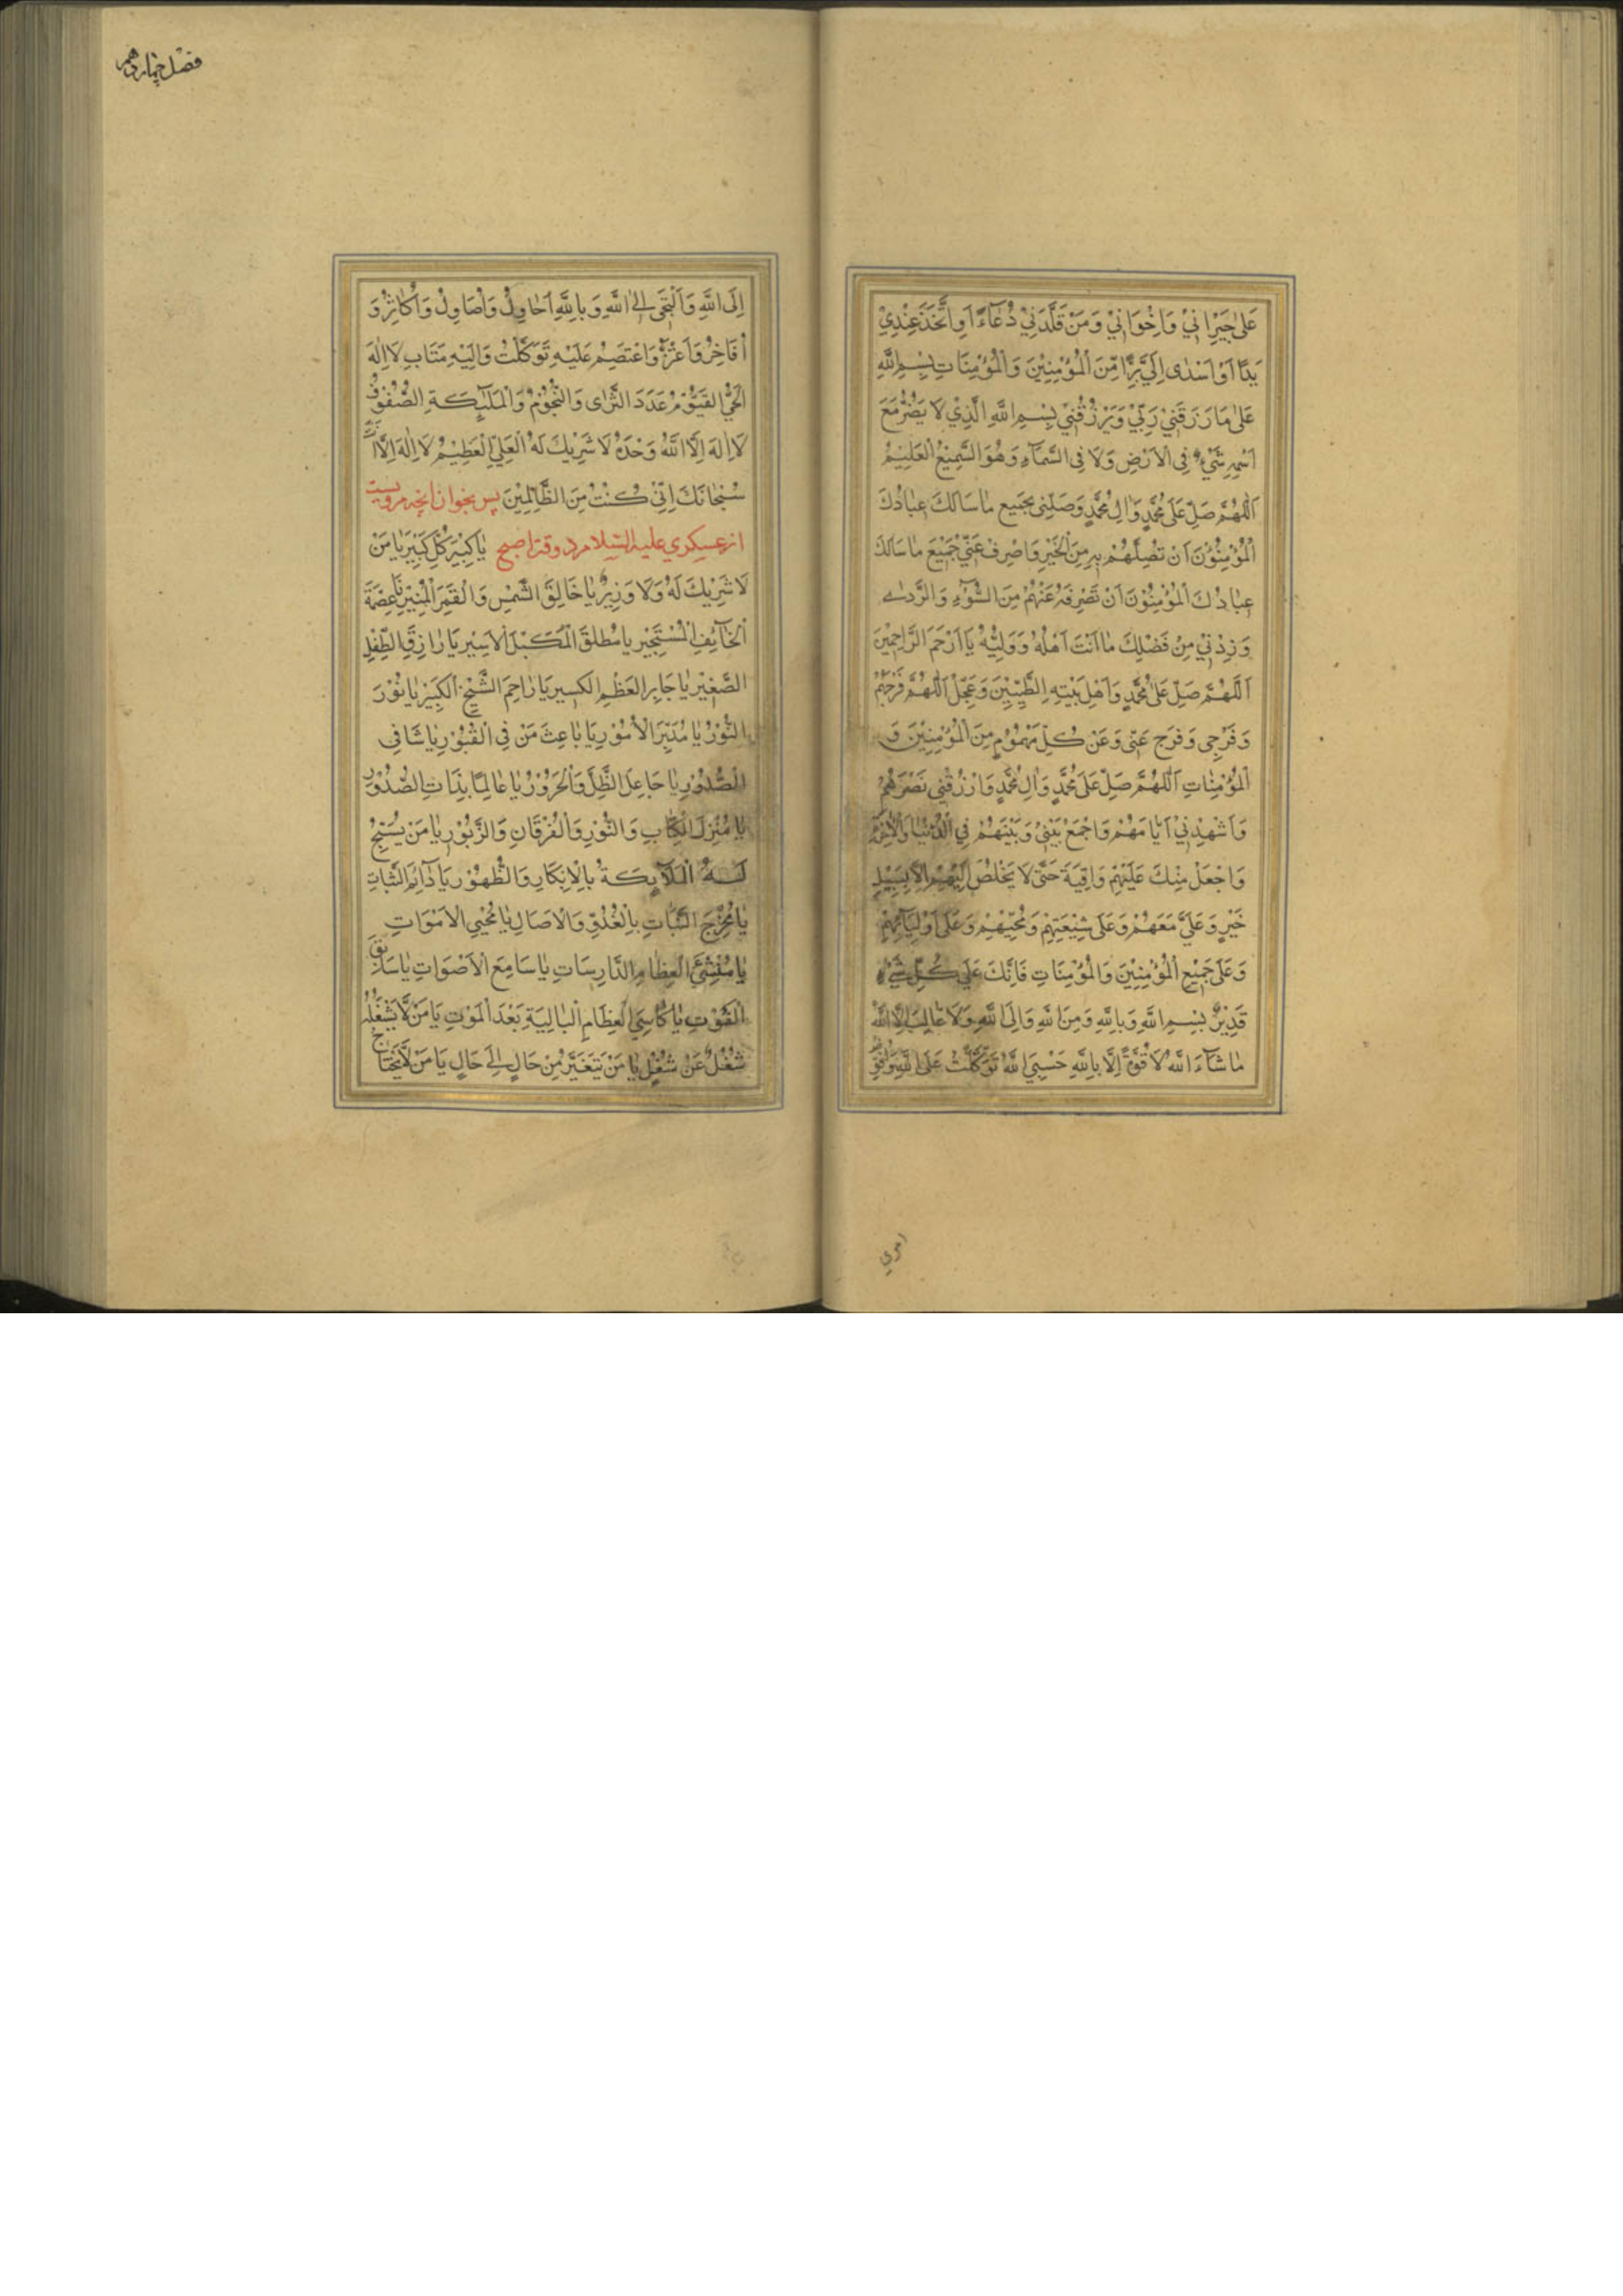 عَلٰى جِيرَانِيْ وَاِخْوَانِيْ وَمَنْ قَلَّدَنِيْ دُعَآءً اَوِاتَّخَذَ عِنْدِيْ
يَدًا اَوْ اَسْدٰى اِلَيَّ بِرًّا مِنَ الْمُؤْمِنِيْنَ وَالْمُؤْمِنَاتِ بِسْمِ اللّٰهِ
عَلٰى مَا رَزَقَنِيْ رَبِّيْ وَيَرْزُقُنِيْ بِسْمِ اللّٰهِ الَّذِيْ لَا يَضُرُّ مَعَ
اسْمِهِ شَيْءٌ فِى الْاَرْضِ وَلَا فِى السَّمَآءِ وَهُوَ السَّمِيْعُ الْعَلِيْمُ
اَللّٰهُمَّ صَلِّ عَلٰى مُحَمَّدٍ وَاٰلِ مُحَمَّدٍ وَصِلْنِى بِجَمِيعِ مٰا سَاَلَكَ عِبَادُكَ
الْمُؤْمِنُوْنَ اَنْ تَصِلَهُمْ بِهِ مِنَ الْخَيْرِ وَاصْرِفْ عَنِّيْ جَمِيْعَ مٰا سَاَلَكَ
عِبَادُكَ الْمُؤْمِنُوْنَ اَنْ تَصْرِفَهُ عَنْهُمْ مِنَ السُّوْٓءِ وَالرَّدٰى
وَزِدْنِيْ مِنْ فَضْلِكَ مٰا اَنْتَ اَهْلُهُ وَوَلِيُّهُ يَا اَرْحَمَ الرَّاحِمِيْنَ
اَللّٰهُمَّ صَلِّ عَلٰى مُحَمَّدٍ وَاَهْلِ بَيْتِهِ الطَّيِّبِيْنَ وَعَجِّلْ اَللّٰهُمَّ فَرَجَهُمْ
وَفَرَجِى وَفَرِّجْ عَنِّى وَعَنْ كُلِّ مَهْمُوْمٍ مِنَ الْمُؤْمِنِيْنَ وَ
الْمُؤْمِنٰاتِ اَللّٰهُمَّ صَلِّ عَلٰى مُحَمَّدٍ وَاٰلِ مُحَمَّدٍ وَارْزُقْنِى نَصْرَهُمْ
وَاَشْهِدْنِيْ اَيَّامَهُمْ وَاجْمَعْ بَيْنِيْ وَبَيْنَهُمْ فِي الدُّنْيٰا وَالْاٰخِرَةِ
وَاجْعَلْ مِنْكَ عَلَيْهِمْ وَاقِيَةً حَتّٰى لَا يَخْلُصَ اِلَيْهِمْ اِلَّا بِسَبِيْلِ
خَيْرٍ وَعَلَيَّ مَعَهُمْ وَعَلٰى شِيْعَتِهِمْ وَمُحِبِّيْهِمْ وَعَلٰى اَوْلِيَآئِهِمْ
وَعَلٰى جَمِيْعِ الْمُؤْمِنِيْنَ وَالْمُؤْمِنَاتِ فَاِنَّكَ عَلٰى كُلِّ شَيْءٍ
قَدِيْرٌ بِسْمِ اللّٰهِ وَبِاللّٰهِ وَمِنَ اللّٰهِ وَاِلَى اللّٰهِ وَلَا غَالِبَ اِلَّا اللّٰهُ
مٰا شَآءَ اللّٰهُ لَا قُوَّةَ اِلَّا بِاللّٰهِ حَسْبِيَ اللّٰهُ تَوَكَّلْتُ عَلَى اللّٰهِ وَاُفَوِّضُ
امري
فصل چهاردهم
اِلَى اللّٰهِ وَاَلْتَجِئُ اِلَى اللّٰهِ وَبِاللّٰهِ اُحَاوِلُ وَاُصَاوِلُ وَاُكٰاثِرُ وَ
اُفَاخِرُ وَاَعْتَزُّ وَاَعْتَصِمُ عَلَيْهِ تَوَكَّلْتُ وَاِلَيْهِ مَتَابِ لَا اِلٰهَ
الْحَيُّ الْقَيُّوْمُ عَدَدَ الثَّرٰى وَالنُّجُوْمِ وَالْمَلٰٓئِكَةِ الصُّفُوْفِ
لَا اِلٰهَ اِلَّا اللّٰهُ وَحْدَهُ لَا شَرِيْكَ لَهُ الْعَلِيُّ الْعَظِيْمُ لَا اِلٰهَ اِلَّا اَنْتَ
سُبْحٰانَكَ اِنِّىْ كُنْتُ مِنَ الظَّالِمِيْنَ پس بخوان انچه مرويست
از عسكري عليه السلام در وقت صبح يٰا كَبِيْرَ كُلِّ كَبِيْرٍ يٰا مَنْ
لَا شَرِيْكَ لَهُ وَلَا وَزِيْرَ يٰا خَالِقَ الشَّمْسِ وَالْقَمَرِ الْمُنِيْرِ يٰا عِصْمَةَ
الْخٰآئِفِ الْمُسْتَجِيْرِ يٰا مُطْلِقَ الْمُكَبَّلِ الْاَسِيْرِ يٰا رٰازِقَ الطِّفْلِ
الصَّغِيْرِ يٰا جَابِرَ الْعَظْمِ الْكَسِيرِ يٰا رٰاحِمَ الشَّيْخِ الْكَبِيْرِ يٰا نُوْرَ
النُّوْرِ يٰا مُدَبِّرَ الْاُمُوْرِ يٰا بٰاعِثَ مَنْ فِى الْقُبُوْرِ يٰا شَافِىَ
الصُّدُوْرِ يٰا جَاعِلَ الظِّلِّ وَالْحَرُوْرِ يٰا عٰالِمًا بِذَاتِ الصُّدُوْرِ
يٰا مُنْزِلَ الْكِتَابِ وَالنُّوْرِ وَالْفُرْقَانِ وَالزَّبُوْرِ يٰا مَنْ يُسَبِّحُ
لَهُ الْمَلَآئِكَةُ بِالْاِبْكَارِ وَالظُّهُوْرِ يَا دَآئِمَ الثَّبَاتِ
يٰا مُخْرِجَ النَّبَاتِ بِالْغُدُوِّ وَالْاٰصَالِ يٰا مُحْيِيَ الْاَمْوَاتِ
يٰا مُنْشِئَ الْعِظٰامِ الدَّارِسَاتِ يٰا سَامِعَ الْاَصْوَاتِ يٰا سَابِقَ
الْفَوْتِ يٰا كٰاسِيَ الْعِظَامِ الْبٰالِيَةِ بَعْدَ الْمَوْتِ يَا مَنْ لَا يَشْغَلُهُ
شُغْلٌ عَنْ شُغْلٍ يٰا مَنْ يَتَغَيَّرُ مِنْ حَالٍ اِلٰى حَالٍ يَا مَنْ لَا يَحْتٰاجُ